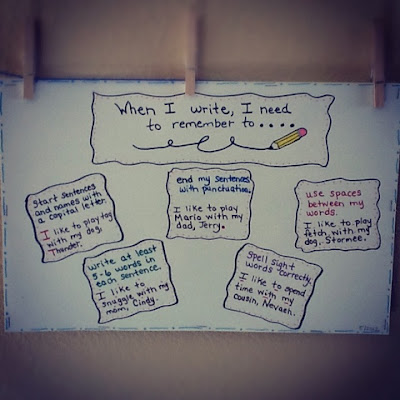 When I write, I need
to remember to....
start sentences
and names with
a capital letter.
I like to play tag
with my dog,
Thunder.
end my sentences
with punctuation.
I like to play
Mario with my
dad, Jerry.
use spaces
between my
words.
I like to play
fetch with my
dog, Stormee.
write at least
5-6 words in
each sentence.
I like to
snuggle with my
mom, Cindy.
spell sight
words correctly.
I like to spend
time with my
cousin, Nevaeh.